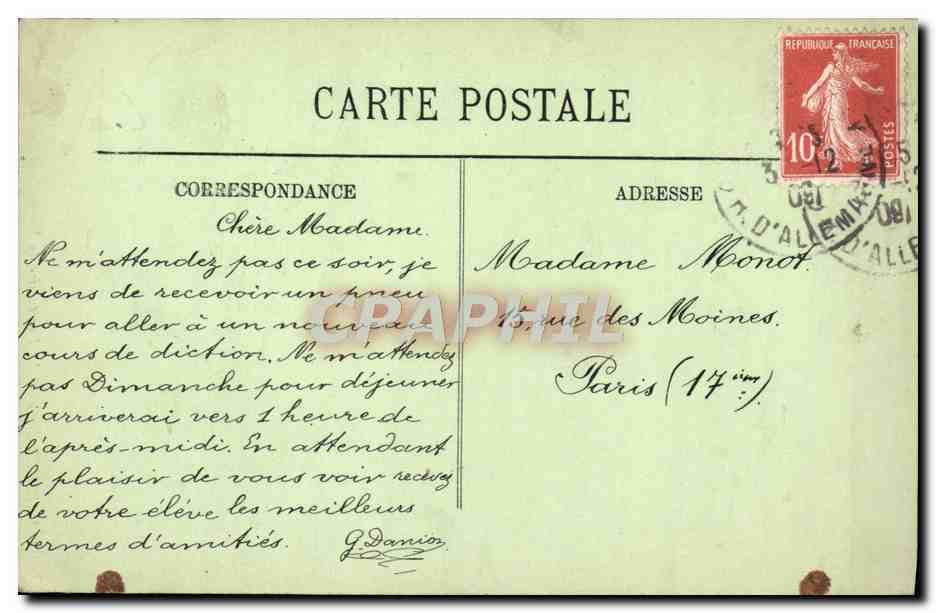 CARTE POSTALE
REPUBLIQUE FRANÇAISE
10
POSTES
3 5
3 -12
09
R. D'ALLEMAGNE
5
-12
09
D'ALLE
CORRESPONDANCE
Chère Madame.
Ne m'attendez pas ce soir, je
viens de recevoir un pneu
pour aller à un nouveau
cours de diction. Ne m'attendez
pas Dimanche pour déjeuner
j'arriverai vers 1 heure de
l'après-midi. En attendant
le plaisir de vous voir recevez
de votre élève les meilleurs
termes d'amitiés.
G. Danion
ADRESSE
Madame Monot.
15, rue des Moines.
Paris (17ième)
CPAPHIL